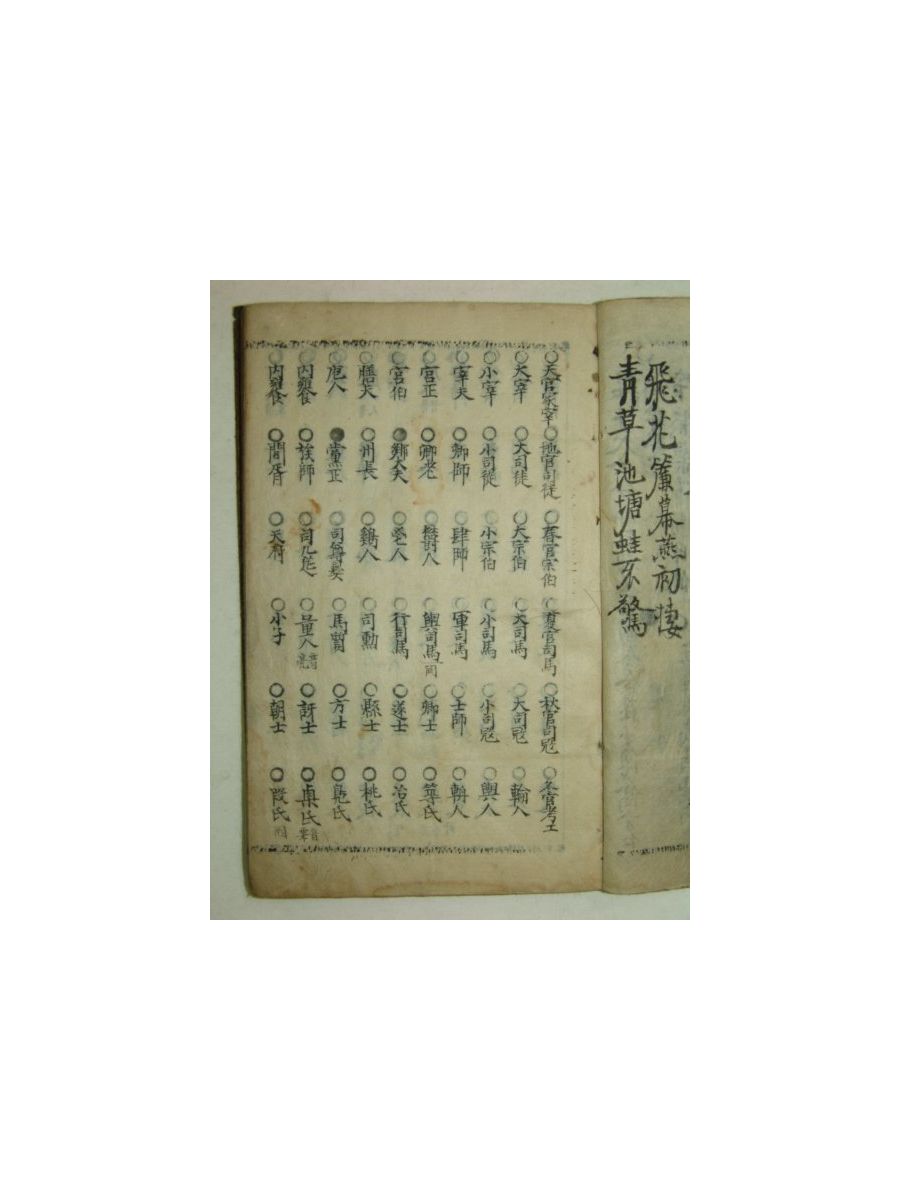 飛花簾幕燕初棲
青草池塘蛙不驚
○天官冢宰○地官司徒○春官宗伯○夏官司馬○秋官司寇○冬官考工
○大宰○大司徒○大宗伯○大司馬○大司寇○輪人
○小宰○小司徒○小宗伯○小司馬○小司寇○輿人
○宰夫○鄉師○肆師○軍司馬○士師○輈人
○宮正○鄉老○鬱人○輿司馬○鄉士○築氏
○宮伯●鄉大夫○鬯人○行司馬○遂士○冶氏
○膳夫○州長○鷄人○司勳○縣士○桃氏
○庖人●黨正○司尊彛○馬質○方士○鳧氏
○內饔○族師○司几筵○量人○訝士○㮚氏
○內饔○閭胥○天府○小子○朝士○段氏